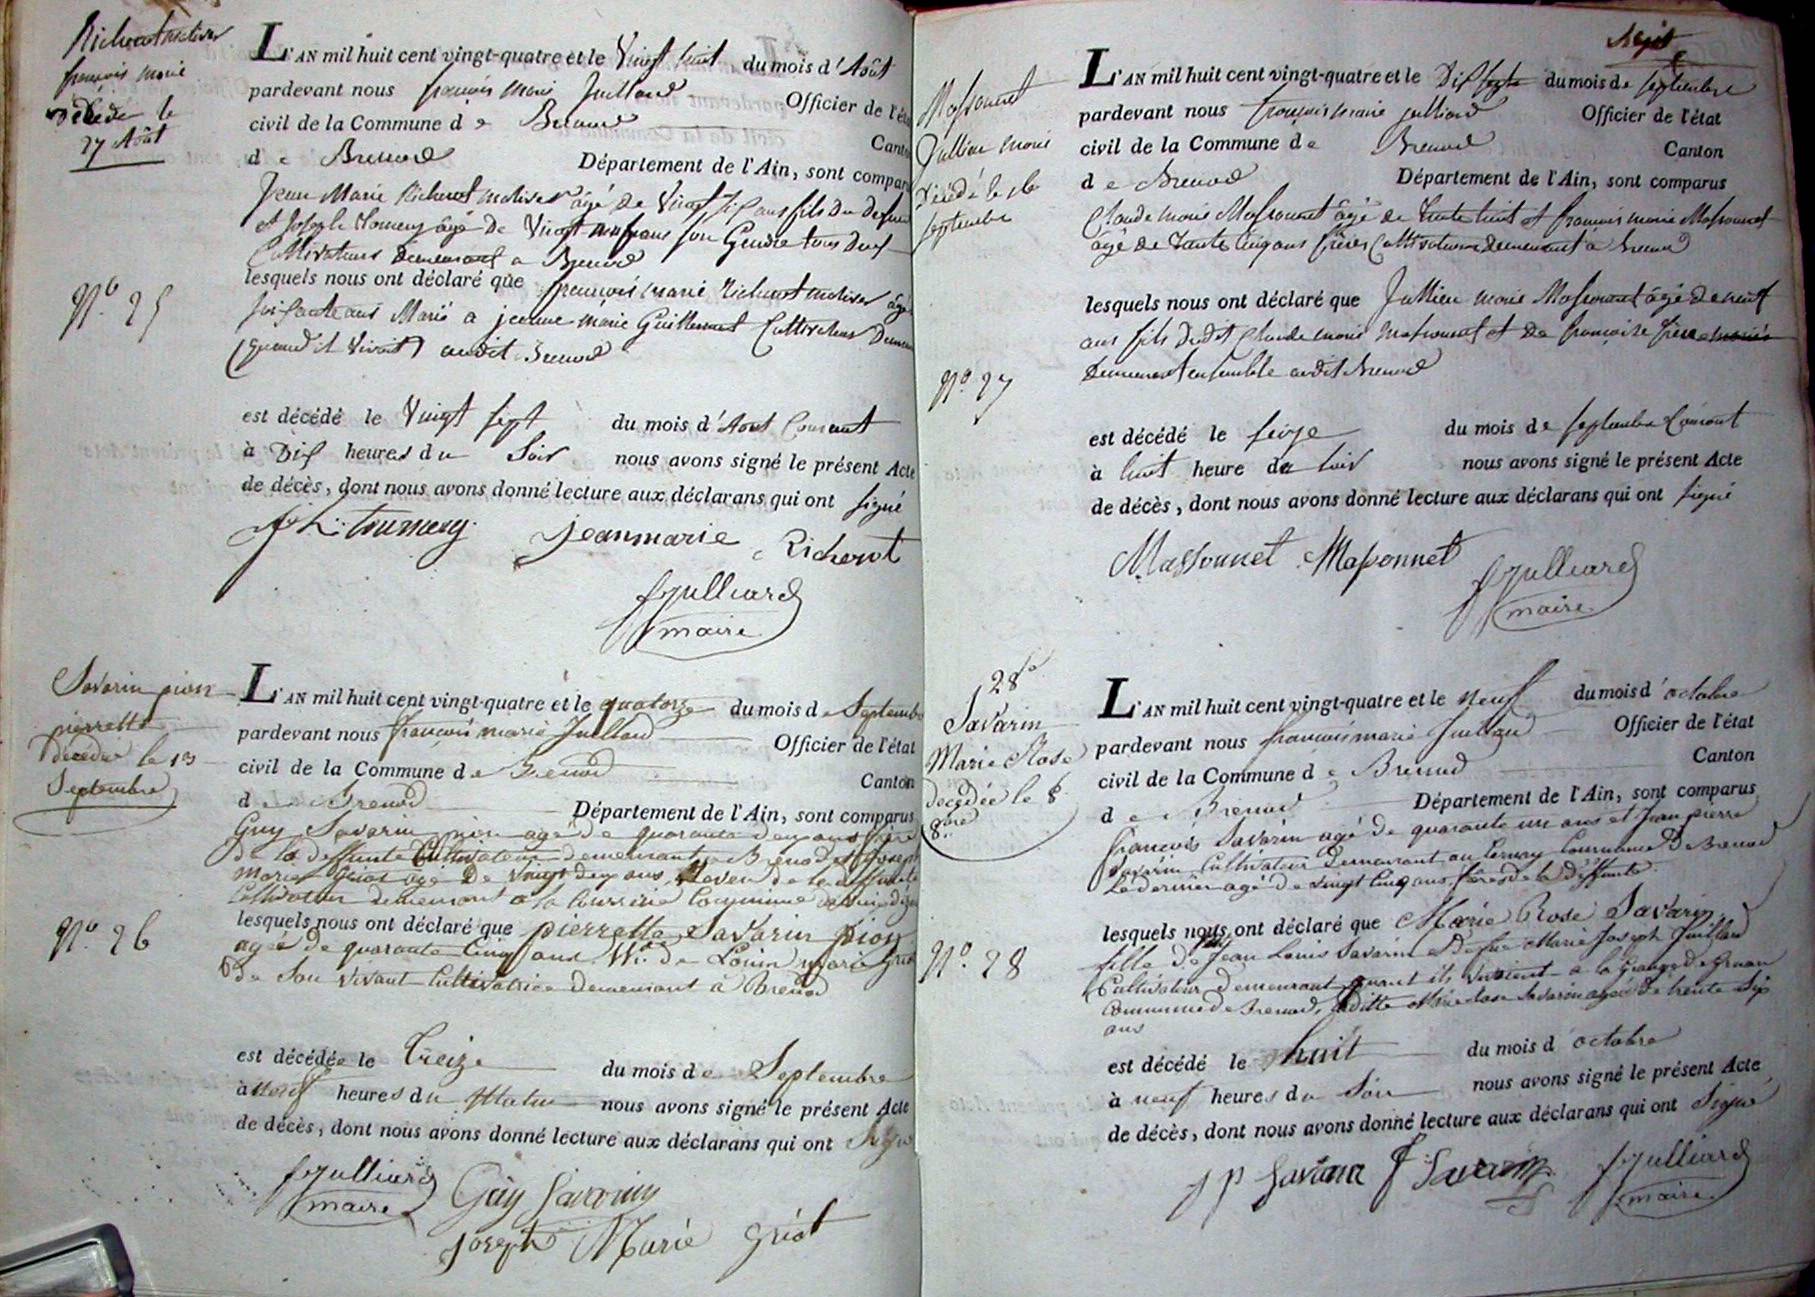 Richerot
françois marie
décédé le
27 Août
N.º 25
L'AN mil huit cent vingt-quatre et le Vingt huit du mois d'Août
pardevant nous françois marie Juillard Officier de l'état
civil de la Commune de Brenod Canton
de Brenod Département de l'Ain, sont comparus
Jean Marie Richerot âgé de Vingt Six ans fils du defunt
et Joseph Tournery âgé de Vingt neuf ans son Gendre tous deux
Cultivateurs demeurant a Brenod
lesquels nous ont déclaré que françois marie Richerot âgé
soixante ans Marié a jeanne marie Guillermet Cultivateur Demeurant
(quand il Vivait) audit Brenod
est décédé le Vingt sept du mois d'Aout Courant
à Dix heures du Soir nous avons signé le présent Acte
de décès, dont nous avons donné lecture aux déclarans qui ont signé
Jh Tournery Jean marie Richerot
fJulliard
maire
Savarin pion
pierrette
décédée le 13
Septembre
N.º 26
L'AN mil huit cent vingt-quatre et le quatorze du mois de Septembre
pardevant nous françois marie Juillard Officier de l'état
civil de la Commune de Brenod Canton
de Brenod Département de l'Ain, sont comparus
Guy Savarin pion agé de quarante deux ans frère
de la deffunte Cultivateur demeurant a Brenod et Joseph
Marie Griot agé de Vingt deux ans, neveu de la deffunte
Cultivateur demeurant a la Commune
lesquels nous ont déclaré que pierrette Savarin pion
agée de quarante Cinq ans Vve de Louis marie Griot
de Son Vivant Cultivatrice demeurant à Brenod
est décédée le Treize du mois de Septembre
à neuf heures du Matin nous avons signé le présent Acte
de décès, dont nous avons donné lecture aux déclarans qui ont Signé
fJulliard
maire
Guy Savarin
joseph Marie griot
Sept
Massonnet
Jullien marie
Décédé le 16
septembre
N.º 27
L'AN mil huit cent vingt-quatre et le Dix septe du mois de septembre
pardevant nous françois marie julliard Officier de l'état
civil de la Commune de Brenod Canton
de Brenod Département de l'Ain, sont comparus
Claude marie Massonnet âgé de trente huit et francois marie Massonnet
âgé de trente Cinq ans frères Cultivateurs demeurant a Brenod
lesquels nous ont déclaré que Jullien marie Massonnet âgé de neuf
ans fils dudit Claude marie Massonnet et de françoise
Demeurant ensemble audit Brenod
est décédé le seize du mois de septembre Courant
à huit heure du soir nous avons signé le présent Acte
de décès, dont nous avons donné lecture aux déclarans qui ont signé
Massonnet Massonnet
fJulliard
maire
28º
Savarin
Marie Rose
Décédée le 8
8bre
N.º 28
L'AN mil huit cent vingt-quatre et le neuf du mois d'octobre
pardevant nous françois marie Juillard Officier de l'état
civil de la Commune de Brenod Canton
de Brenod Département de l'Ain, sont comparus
françois Savarin agé de quarante un ans et Jean pierre
Savarin Cultivateur Demeurant au Commune de Brenod
Le dernier agé de vingt Cinq ans frères de la deffunte
lesquels nous ont déclaré que Marie Rose Savarin
fille de Jean Louis Savarin et de feue Marie Joseph Juillard
Cultivateur demeurant quand ils vivaient a la Grange
Commune de Brenod, Laditte Marie Rose Savarin agée de trente Six
ans
est décédé le huit du mois d'octobre
à neuf heures du Soir nous avons signé le présent Acte
de décès, dont nous avons donné lecture aux déclarans qui ont Signé
J P Savarin f Savarin
fJulliard
maire